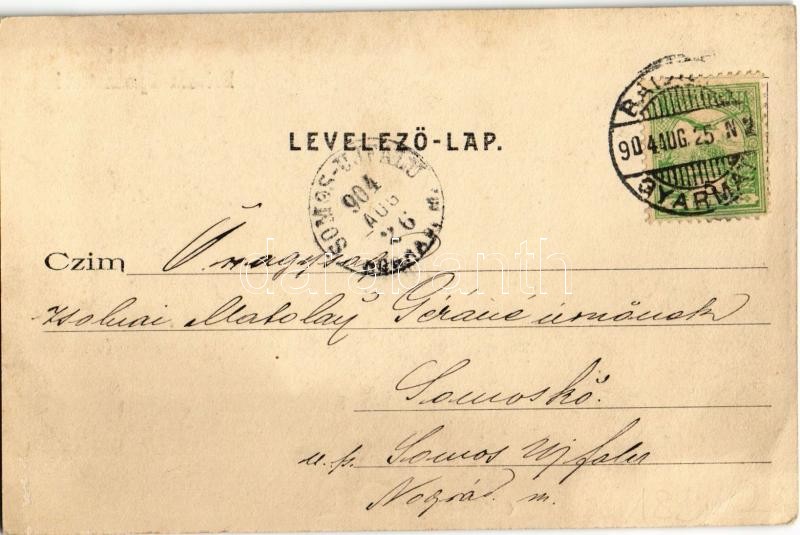 LEVELEZŐ-LAP.
904 AUG. 25. N
GYARMA
SOMOS-UJFALU
904
AUG
26
Czim Őnagysága
zsolnai Matolay Gézáné úrnőnek
Somoskő.
u. p. Somos Ujfalu
Nográd m.
darabanth